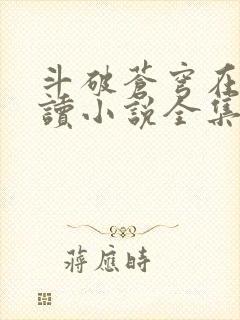 斗破蒼穹在
讀小說全集
蔣應時